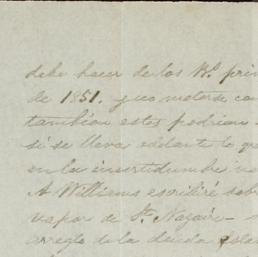 debe hacer de los Rs. prin
de 1851. y no meterse con
tambien estos podrian
si se lleva adelante lo q
en la incertidumbre
A Williams escribiré sob
vapor de St. Nazaire -
arreglo de la deuda